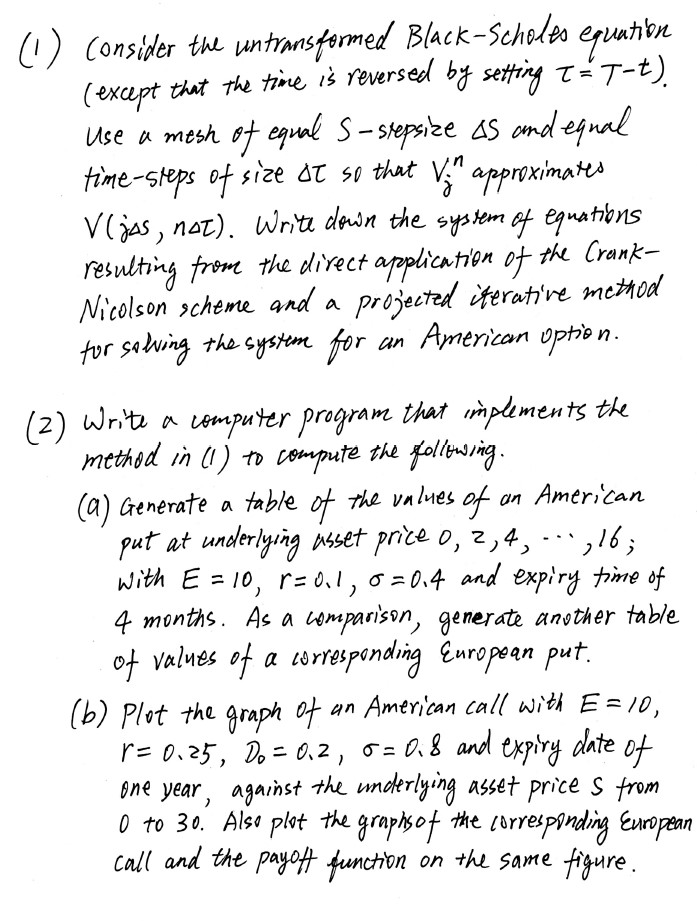 (1) Consider the untransformed Black-Scholes equation
(except that the time is reversed by setting τ = T-t).
Use a mesh of equal S-stepsize ΔS and equal
time-steps of size Δτ so that Vⱼⁿ approximates
V(jΔS, nΔτ). Write down the system of equations
resulting from the direct application of the Crank-
Nicolson scheme and a projected iterative method
for solving the system for an American option.
(2) Write a computer program that implements the
method in (1) to compute the following.
(a) Generate a table of the values of an American
put at underlying asset price 0, 2, 4, ..., 16;
with E = 10, r = 0.1, σ = 0.4 and expiry time of
4 months. As a comparison, generate another table
of values of a corresponding European put.
(b) Plot the graph of an American call with E = 10,
r = 0.25, D₀ = 0.2, σ = 0.8 and expiry date of
one year, against the underlying asset price S from
0 to 30. Also plot the graphs of the corresponding European
call and the payoff function on the same figure.